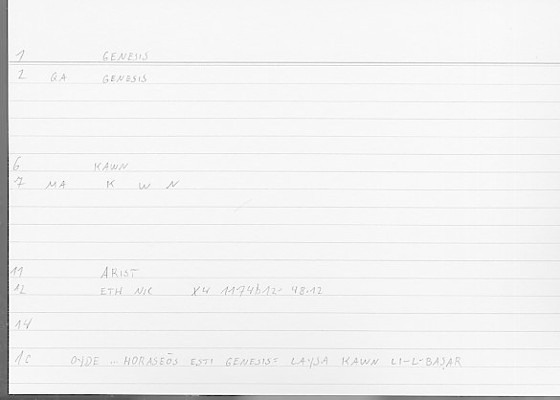 1 GENESIS
2 GA GENESIS
6 KAWN
7 MA K W N
11 ARIST
12 ETH NIC X4 1174b12
14
OYDE .. HORASEŌS ESTI GENESIS: LAYSA KAWN LI-L-BAṢAR